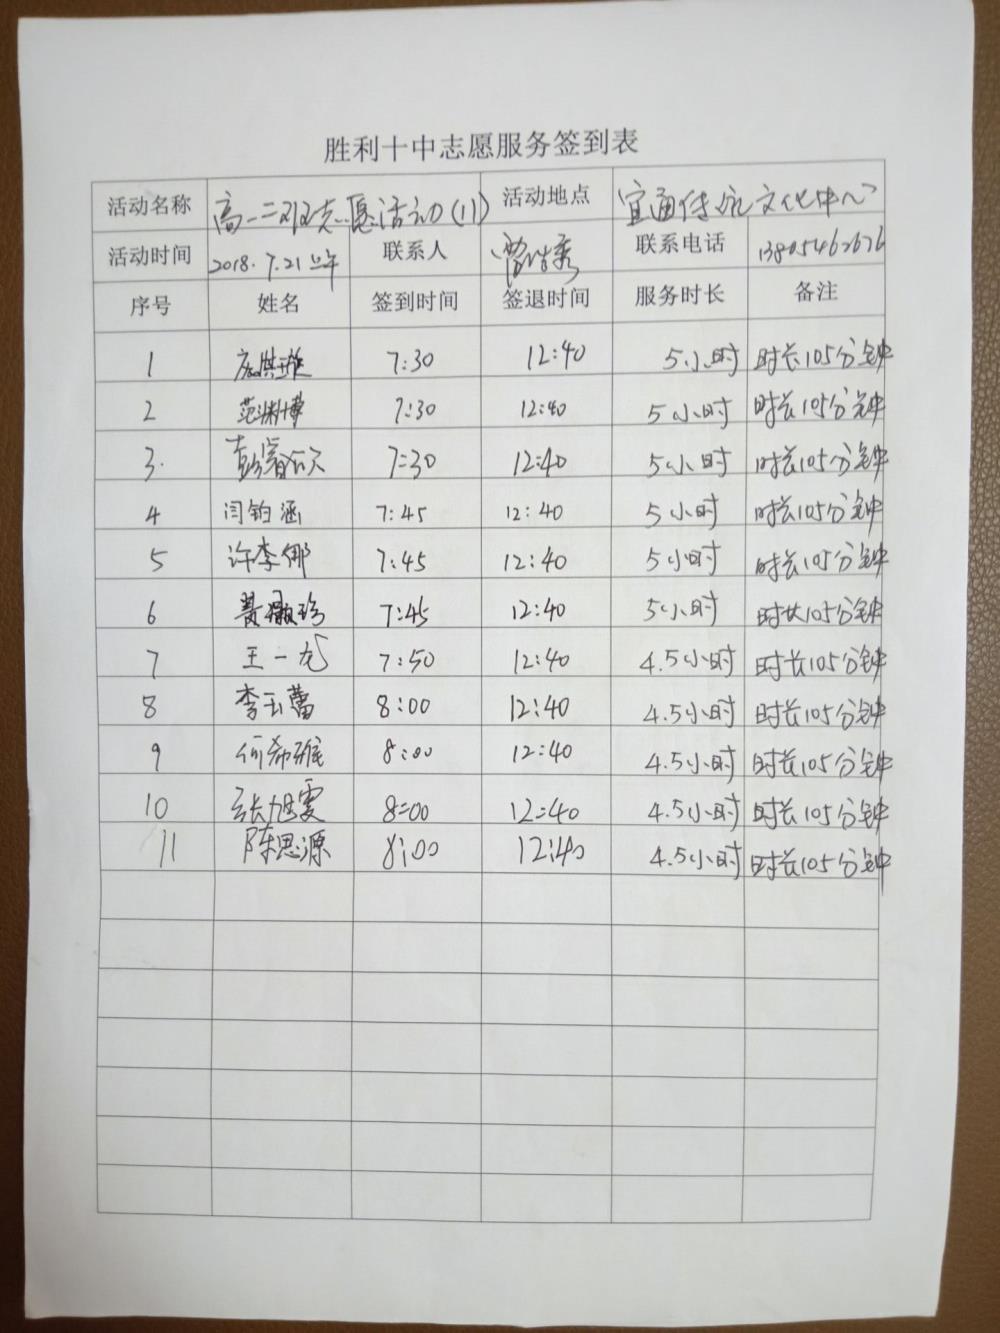 胜利十中志愿服务签到表
活动名称 高一二班志愿活动(11) 活动地点 宜通传统文化中心
活动时间 2018.7.21上午 联系人 联系电话 13805462676
序号 姓名 签到时间 签退时间 服务时长 备注
1 7:30 12:40 5小时 时长105分钟
2 范渊博 7:30 12:40 5小时 时长105分钟
3. 7:30 12:40 5小时 时长105分钟
4 闫铂涵 7:45 12:40 5小时 时长105分钟
5 许李娜 7:45 12:40 5小时 时长105分钟
6 7:45 12:40 5小时 时长105分钟
7 王一 7:50 12:40 4.5小时 时长105分钟
8 李玉蕾 8:00 12:40 4.5小时 时长105分钟
9 何希 8:00 12:40 4.5小时 时长105分钟
10 张旭雯 8:00 12:40 4.5小时 时长105分钟
11 陈思源 8:00 12:40 4.5小时 时长105分钟